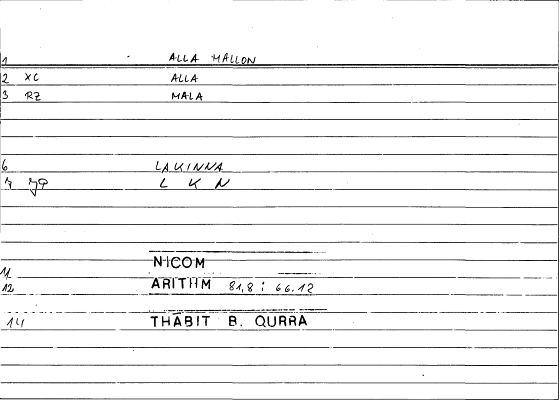 1 ALLA MALLON
2 XC ALLA
3 RZ MALA
6 LAKINNA
L K N
11 NICOM
12 ARITHM 81,8 : 66.12
14 THĀBIT B. QURRA